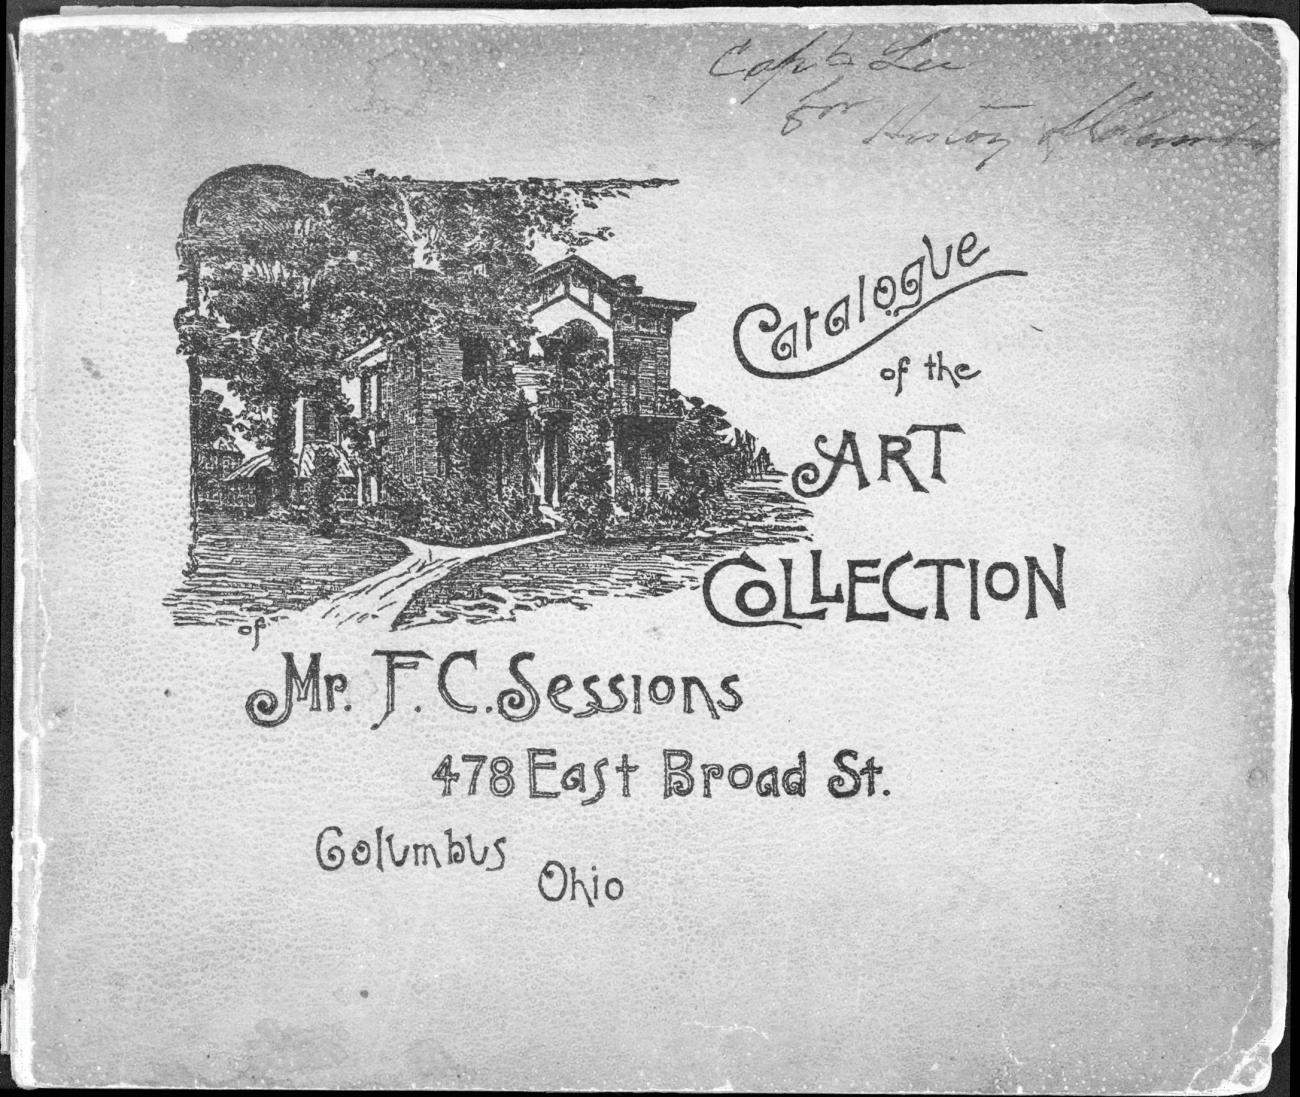 Capt Lee
for History of Columbus
Catalogue
of the
ART
COLLECTION
of
Mr. F. C. Sessions
478 East Broad St.
Columbus
Ohio